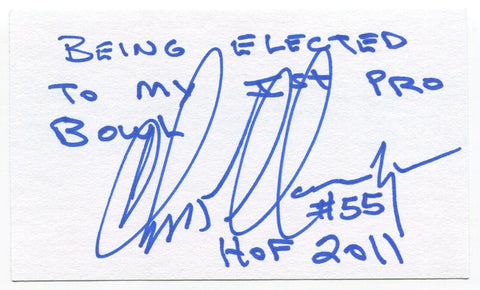 BEING ELECTED
TO MY 1st PRO
BOWL
#55
HOF 2011